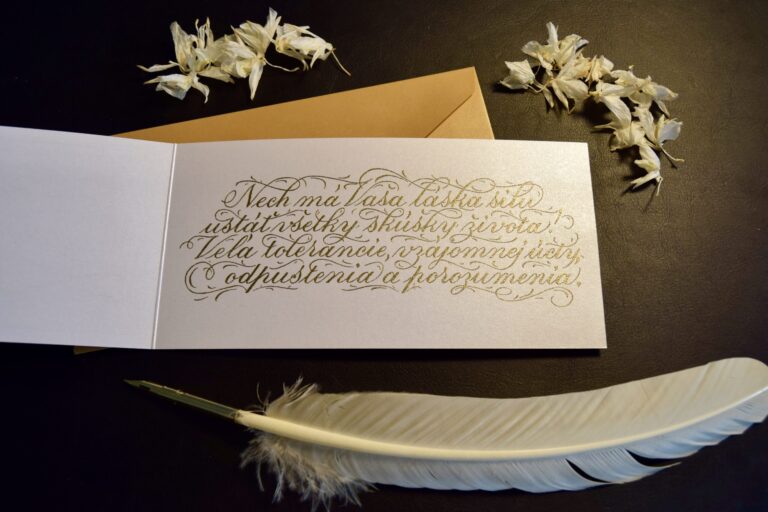 Nech má Vaša láska silu
ustáť všetky skúšky života!
Veľa tolerancie, vzájomnej úcty,
odpustenia a porozumenia.